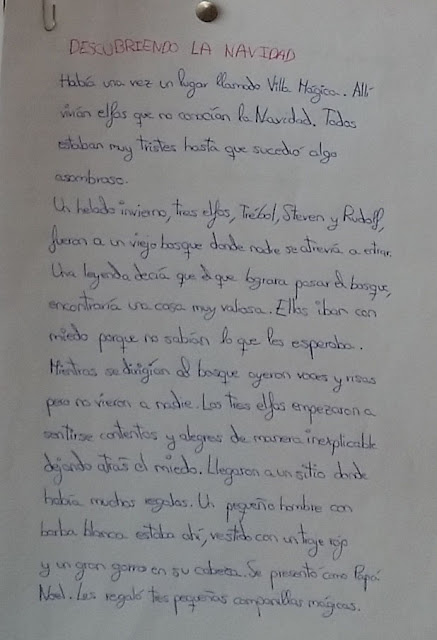 DESCUBRIENDO LA NAVIDAD
Había una vez un lugar llamado Villa Mágica. Allí
vivían elfos que no conocían la Navidad. Todos
estaban muy tristes hasta que sucedió algo
asombroso.
Un helado invierno, tres elfos, Trébol, Steven y Rudolf,
fueron a un viejo bosque donde nadie se atrevía a entrar.
Una leyenda decía que el que lograra pasar el bosque,
encontraría una cosa muy valiosa. Ellos iban con
miedo porque no sabían lo que les esperaba.
Mientras se dirigían al bosque oyeron voces y risas
pero no vieron a nadie. Los tres elfos empezaron a
sentirse contentos y alegres de manera inexplicable
dejando atrás el miedo. Llegaron a un sitio donde
había muchos regalos. Un pequeño hombre con
barba blanca estaba ahí, vestido con un traje rojo
y un gran gorro en su cabeza. Se presentó como Papá
Noel. Les regaló tres pequeñas campanillas mágicas.